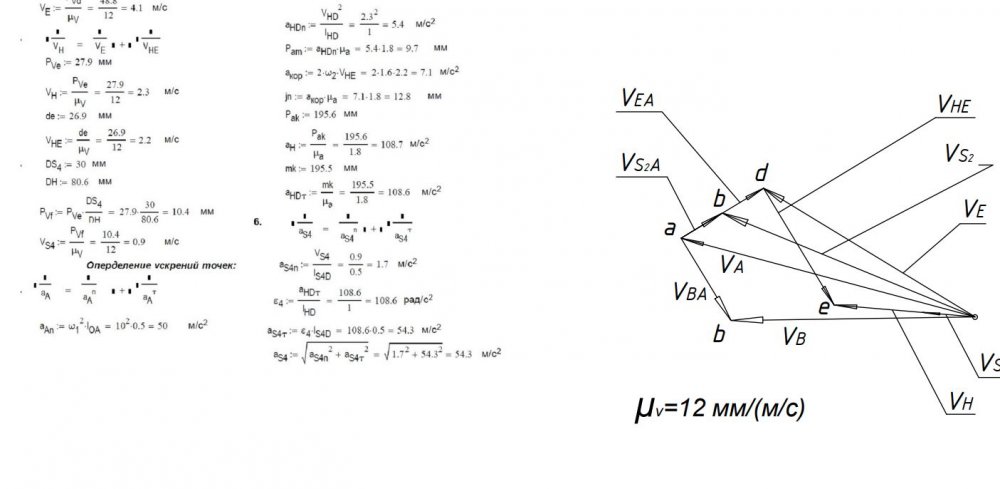 V_E := P_Vd/μ_V = 48.8/12 = 4.1 м/с
V_H = V_E + V_HE
P_Ve := 27.9 мм
V_H := P_Ve/μ_V = 27.9/12 = 2.3 м/с
de := 26.9 мм
V_HE := de/μ_V = 26.9/12 = 2.2 м/с
DS_4 := 30 мм
DH := 80.6 мм
P_Vf := P_Ve·DS_4/DH = 27.9·30/80.6 = 10.4 мм
V_S4 := P_Vf/μ_V = 10.4/12 = 0.9 м/с
Оперделение ускрений точек:
a_A = a_A^n + a_A^τ
a_An := ω_1^2·l_OA = 10^2·0.5 = 50 м/с^2
a_HDn := V_HD^2/l_HD = 2.3^2/1 = 5.4 м/с^2
P_am := a_HDn·μ_a = 5.4·1.8 = 9.7 мм
a_кор := 2·ω_2·V_HE = 2·1.6·2.2 = 7.1 м/с^2
jn := a_кор·μ_a = 7.1·1.8 = 12.8 мм
P_ak := 195.6 мм
a_H := P_ak/μ_a = 195.6/1.8 = 108.7 м/с^2
mk := 195.5 мм
a_HDτ := mk/μ_a = 195.5/1.8 = 108.6 м/с^2
6. a_S4 = a_S4^n + a_S4^τ
a_S4n := V_S4/l_S4D = 0.9/0.5 = 1.7 м/с^2
ε_4 := a_HDτ/l_HD = 108.6/1 = 108.6 рад/с^2
a_S4τ := ε_4·l_S4D = 108.6·0.5 = 54.3 м/с^2
a_S4 := √(a_S4n^2 + a_S4τ^2) = √(1.7^2 + 54.3^2) = 54.3 м/с^2
V_EA
V_HE
V_S2A
d
V_S2
b
V_E
a
V_A
V_BA
e
b
V_B
V_S
V_H
μ_v=12 мм/(м/с)